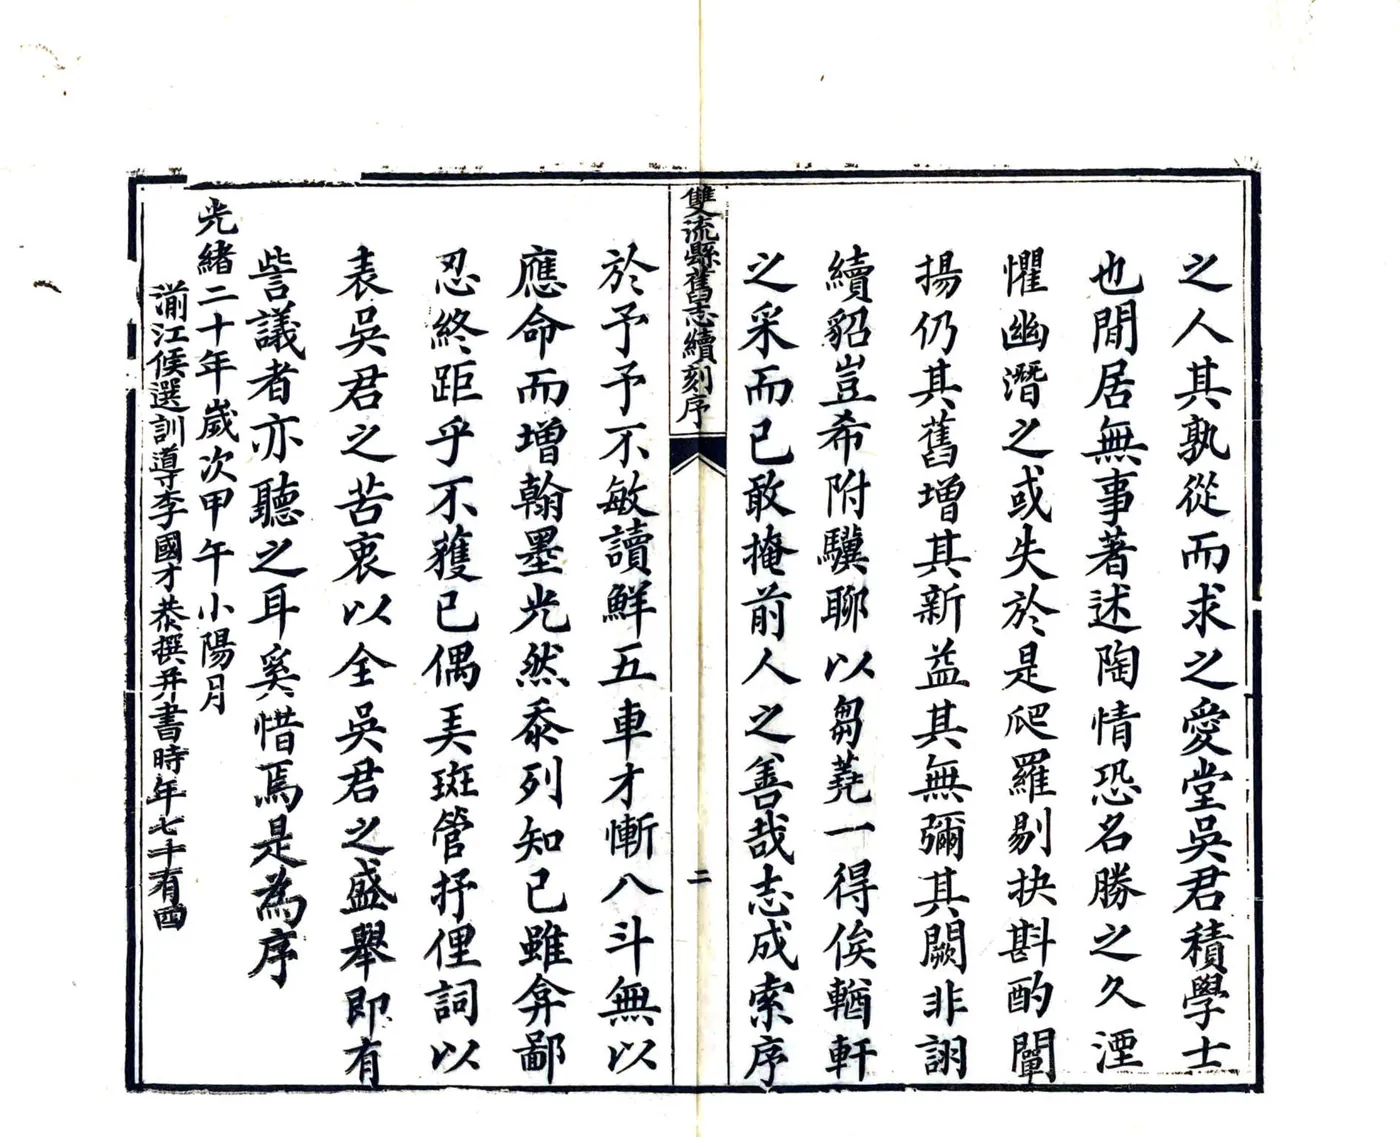 之人其孰從而求之愛堂吳君積學士
也閒居無事著述陶情恐名勝之久湮
懼幽潛之或失於是爬羅剔抉斟酌闡
揚仍其舊增其新益其無彌其闕非詡
續貂豈希附驥聊以芻蕘一得俟輶軒
之采而已敢掩前人之善哉志成索序
雙流縣舊志續刻序
二
於予予不敏讀鮮五車才慚八斗無以
應命而增翰墨光然忝列知己雖弇鄙
忍終距乎不獲已偶弄斑管抒俚詞以
表吳君之苦衷以全吳君之盛舉即有
訾議者亦聽之耳奚惜焉是為序
光緒二十年歲次甲午小陽月
湔江候選訓導李國才恭撰并書時年七十有四